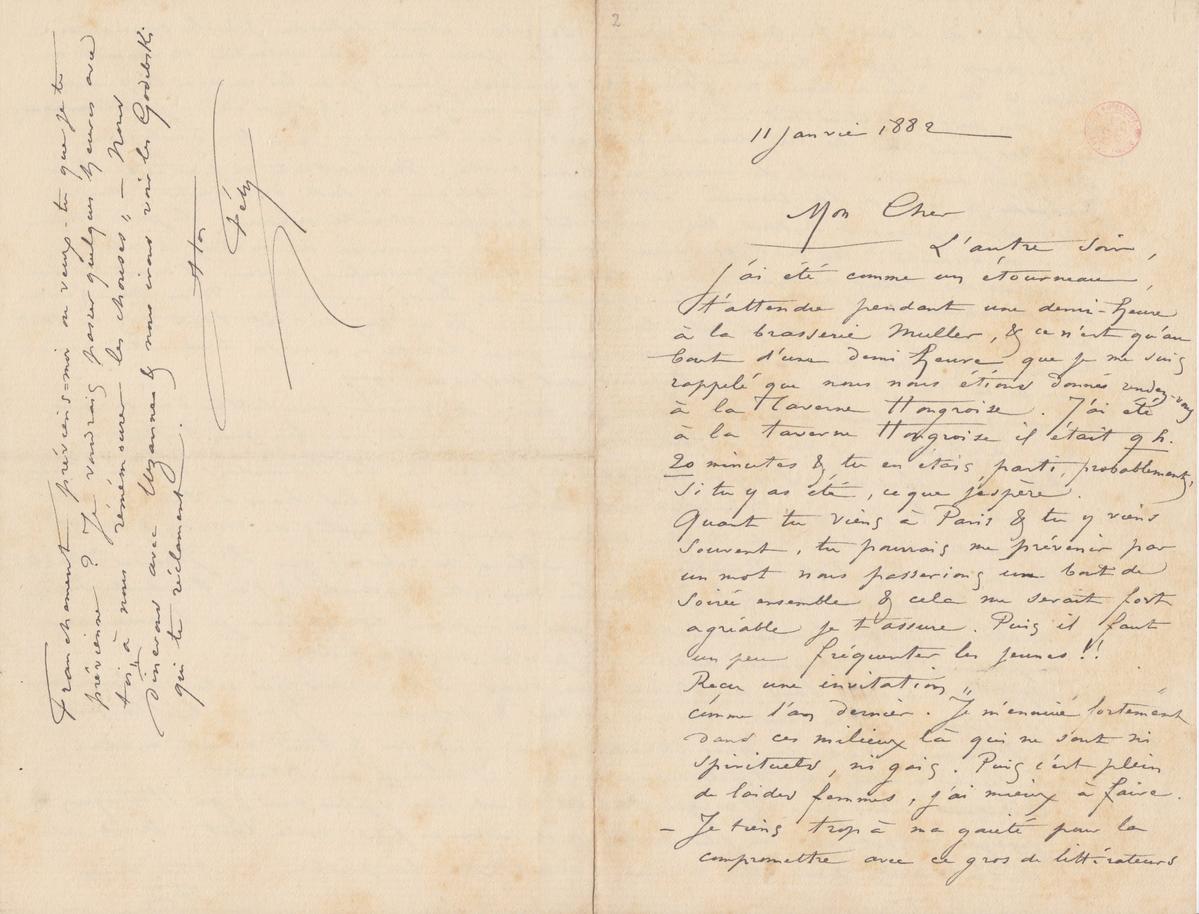 2
11 Janvier 1882
Mon Cher
L'autre soir,
j'ai été comme un étourneau
t'attendre pendant une demi-heure
à la brasserie Muller, & ce n'est qu'au
bout d'une demi heure que je me suis
rappelé que nous nous étions donnés rendez-vous
à la Taverne Hongroise. J'ai été
à la taverne Hongroise il était 9 h.
20 minutes & tu en étais parti, probablement,
si tu y as été, ce que j'espère.
Quant tu viens à Paris & tu y viens
souvent, tu pourrais me prévenir par
un mot nous passerions un bout de
soirée ensemble & cela me serait fort
agréable je t'assure. Puis il faut
un peu fréquenter les jeunes!!
Reçu une invitation
comme l'an dernier. Je m'ennuie fortement
dans ces milieux là qui ne sont ni
spirituels, ni gais. Puis c'est plein
de laides femmes, j'ai mieux à faire.
– Je tiens trop à ma gaieté pour la
compromettre avec ce gros de littérateurs
Franchement préviens-moi ou veux-tu que je te
prévienne? Je voudrais passer quelques heures avec
toi à nous "rémémourer les chouses" – Nous
dînerons avec Uzannes & nous irons voir les Godebski
qui te réclament.
Ton
Fély